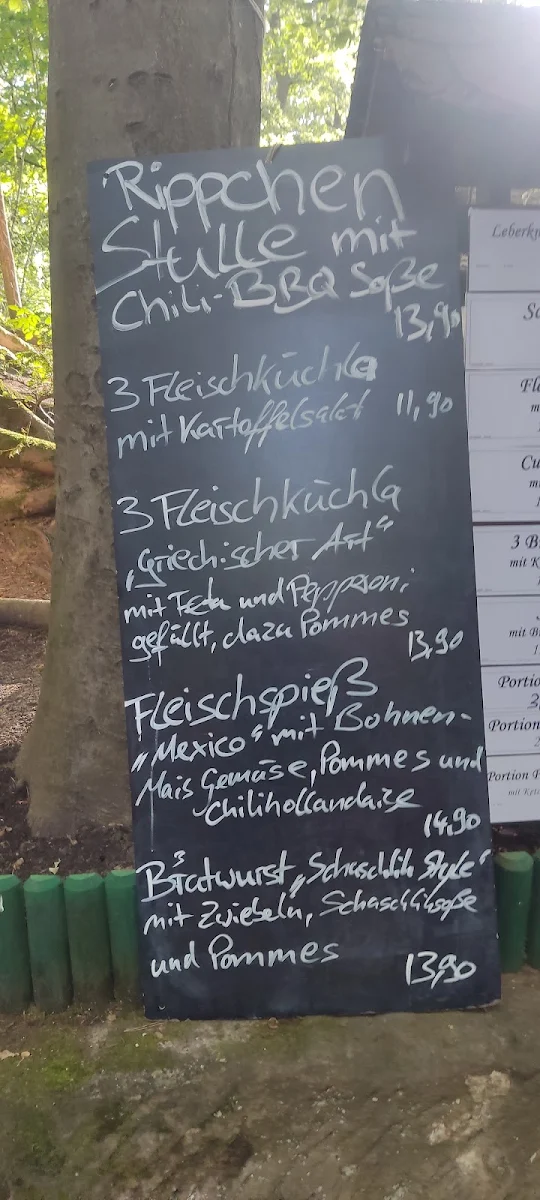 Rippchen
Stulle mit
Chili-BBQ Soße
13,90
3 Fleischküchla
mit Kartoffelsalat 11,90
3 Fleischküchla
„Griechischer Art"
mit Feta und Pepperoni
gefüllt, dazu Pommes
13,90
Fleischspieß
„Mexico" mit Bohnen-
Mais Gemüse, Pommes und
Chilihollandaise
14,90
3
Bratwurst „Schaschlik Style"
mit Zwiebeln, Schaschliksoße
und Pommes
13,90
3 B
mit K
mit B
Portio
Portion
Portion P